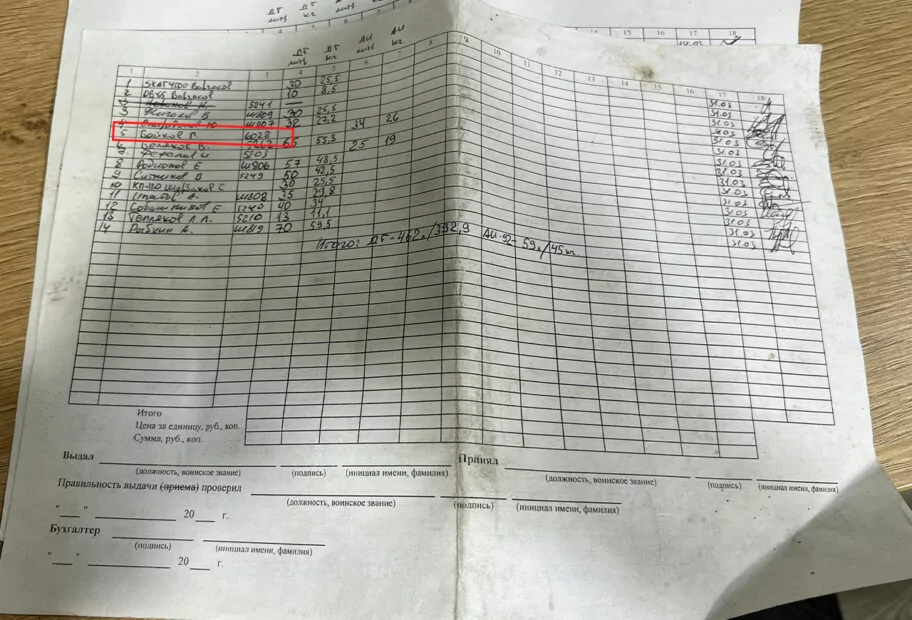 ДТ
ДТ
АИ
АИ
литр
кг
литр
кг
1 2 3 4 5 6 7 8 9 10 11 12 13 14 15 16 17 18
1 30 25,5 31.03
2 DB45 Варгасов 10 8,5 31.03
3 Жигалов В Ш809 30 25,5 31.03
4 Ш807 31.03
5 Бойков Г. 6028 34 26 31.03
6 Беляков В. 65 55,3 31.03
7 5203 25 19 31.03
8 Родионов Е Ш806 57 48,5 31.03
9 Ситников В 5249 50 42,5 31.03
10 КП-130 Щербаков С 30 25,5 31.03
11 А. Ш808 35 29,8 31.03
12 Собашников Е 5240 40 34 31.03
13 Тепляков Л.Л. 5210 13 11,1 31.03
14 Рыбкин А. Ш819 70 59,5 31.03
Итого: ДТ-462л/392,9 АИ-92-59л/45кг
Итого
Цена за единицу, руб., коп.
Сумма, руб., коп.
Выдал Принял
(должность, воинское звание) (подпись) (инициал имени, фамилия) (должность, воинское звание) (подпись) (инициал имени, фамилия)
Правильность выдачи (приема) проверил
(должность, воинское звание) (подпись) (инициал имени, фамилия)
"__" ____ 20__ г.
Бухгалтер
(подпись) (инициал имени, фамилия)
"__" ____ 20__ г.